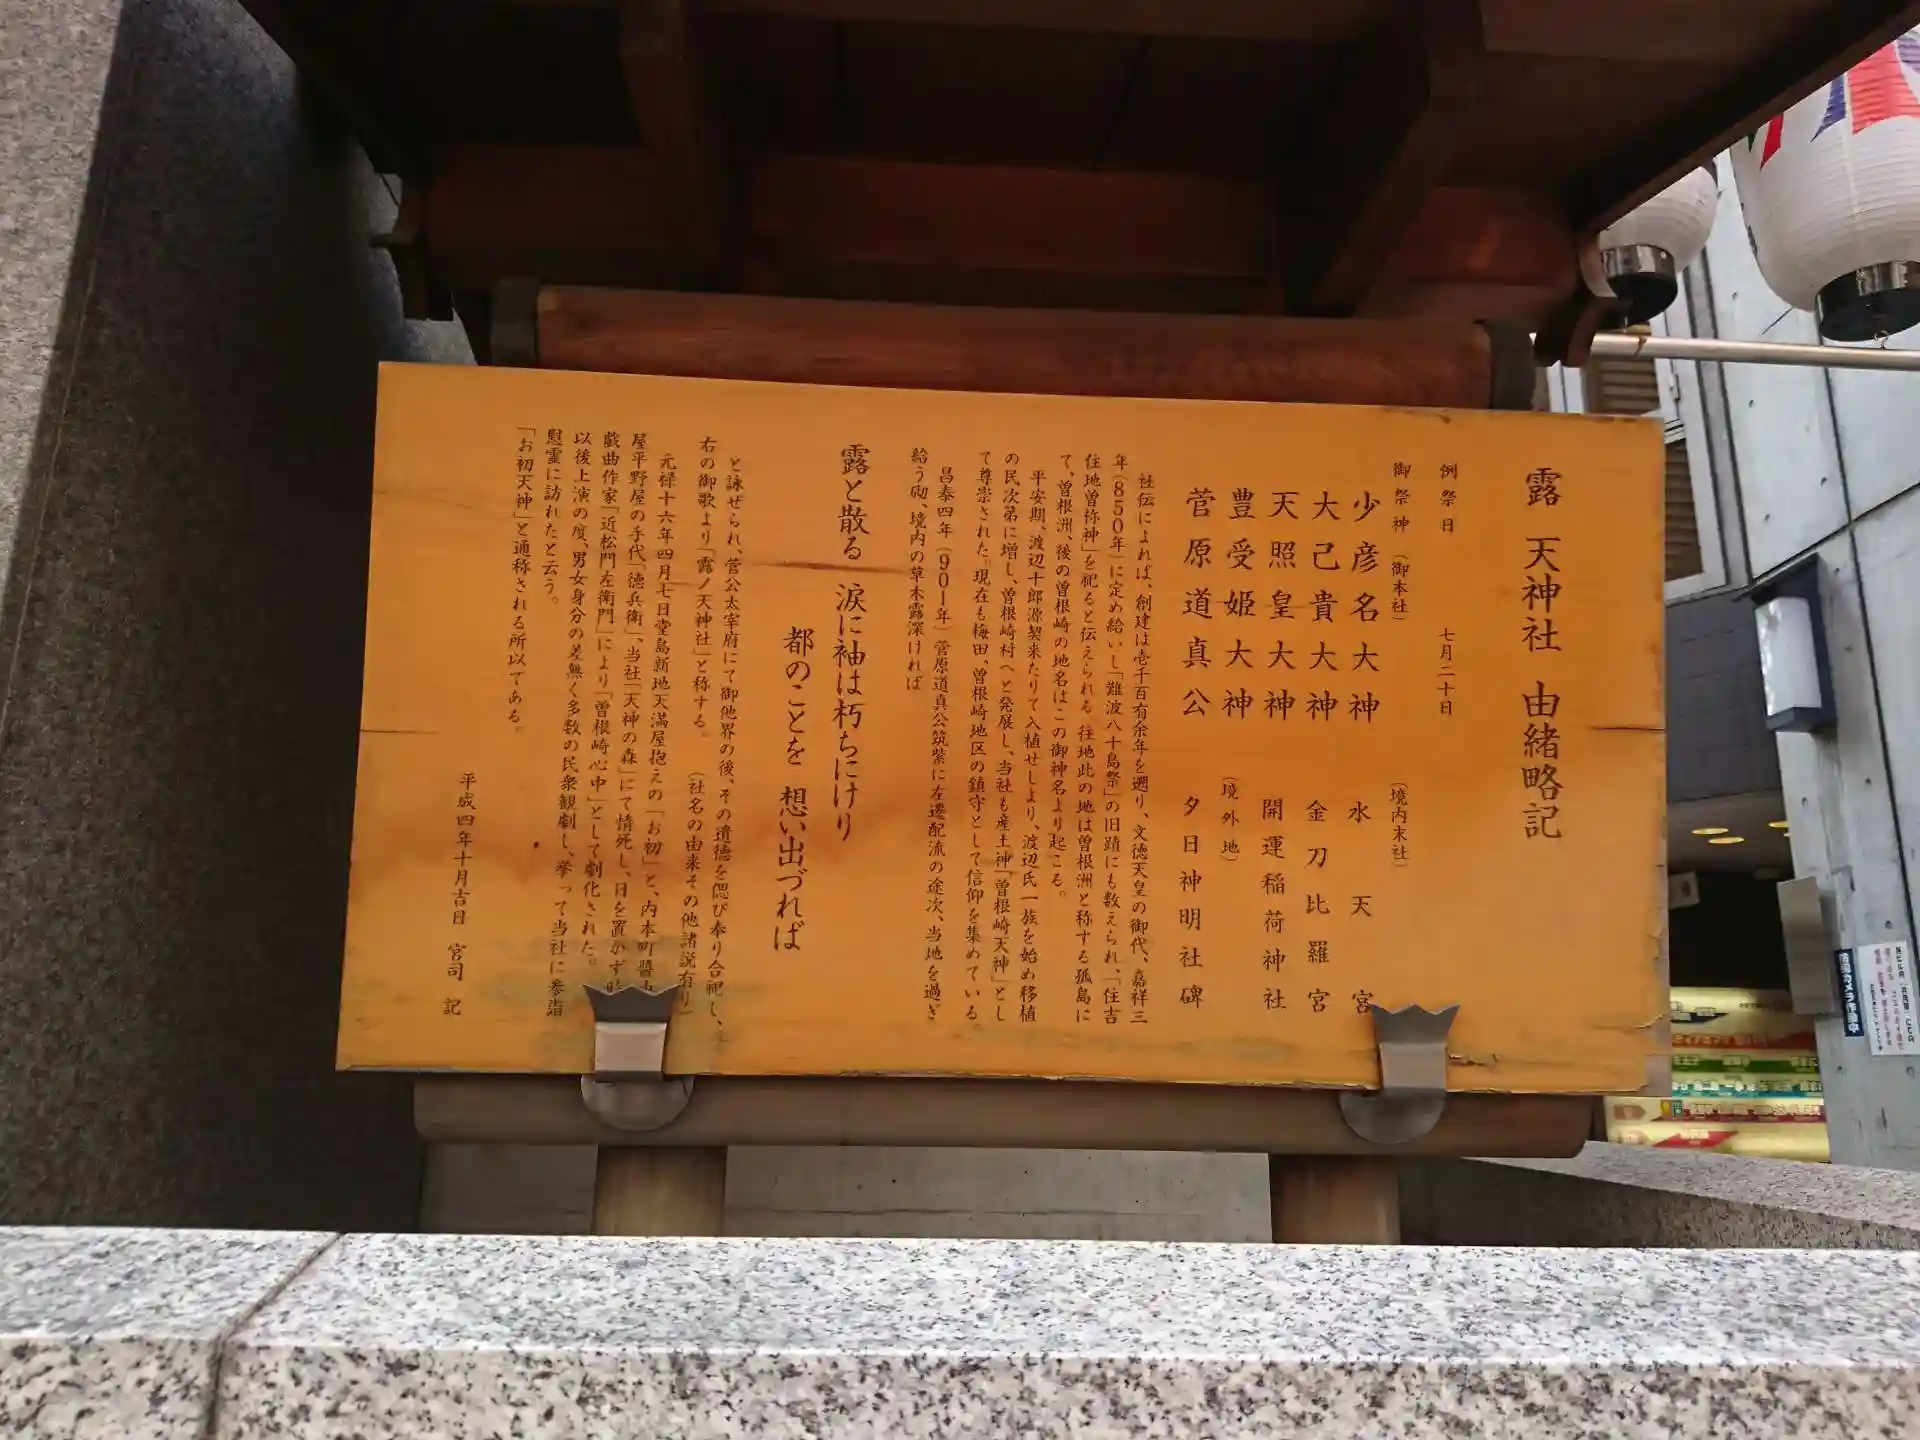 露 天神社 由緒略記
例祭日 七月二十日
御祭神(御本社) (境内末社)
少彦名大神 水天宮
大己貴大神 金刀比羅宮
天照皇大神 開運稲荷神社
豊受姫大神 (境外地)
菅原道真公 夕日神明社碑
社伝によれば、創建は壱千百有余年を遡り、文徳天皇の御代、嘉祥三
年(850年)に定め給いし「難波八十島祭」の旧蹟にも数えられ、「住吉
住地曽祢神」を祀ると伝えられる 往地此の地は曽根洲と称する孤島に
て、曽根洲、後の曽根崎の地名はこの御神名より起こる。
平安期、渡辺十郎源契来たりて入植せしより、渡辺氏一族を始め移植
の民次第に増し、曽根崎村へと発展し、当社も産土神「曽根崎天神」とし
て尊崇された。現在も梅田、曽根崎地区の鎮守として信仰を集めている。
昌泰四年(901年)菅原道真公筑紫に左遷配流の途次、当地を過ぎ
給う砌、境内の草木露深ければ
露と散る 涙に袖は朽ちにけり
都のことを 想い出づれば
と詠ぜられ、菅公太宰府にて御他界の後、その遺徳を偲び奉り合祀し、
右の御歌より「露ノ天神社」と称する。 (社名の由来その他諸説有り)
元禄十六年四月七日堂島新地天満屋抱えの「お初」と、内本町醬
屋平野屋の手代「徳兵衛」、当社「天神の森」にて情死し、日を置かず時
戯曲作家「近松門左衛門」により「曽根崎心中」として劇化された。
以後上演の度、男女身分の差無く多数の民衆観劇し、挙って当社に参詣
慰霊に訪れたと云う。
「お初天神」と通称される所以である。
平成四年十月吉日 宮司 記
防犯カメラ作動中